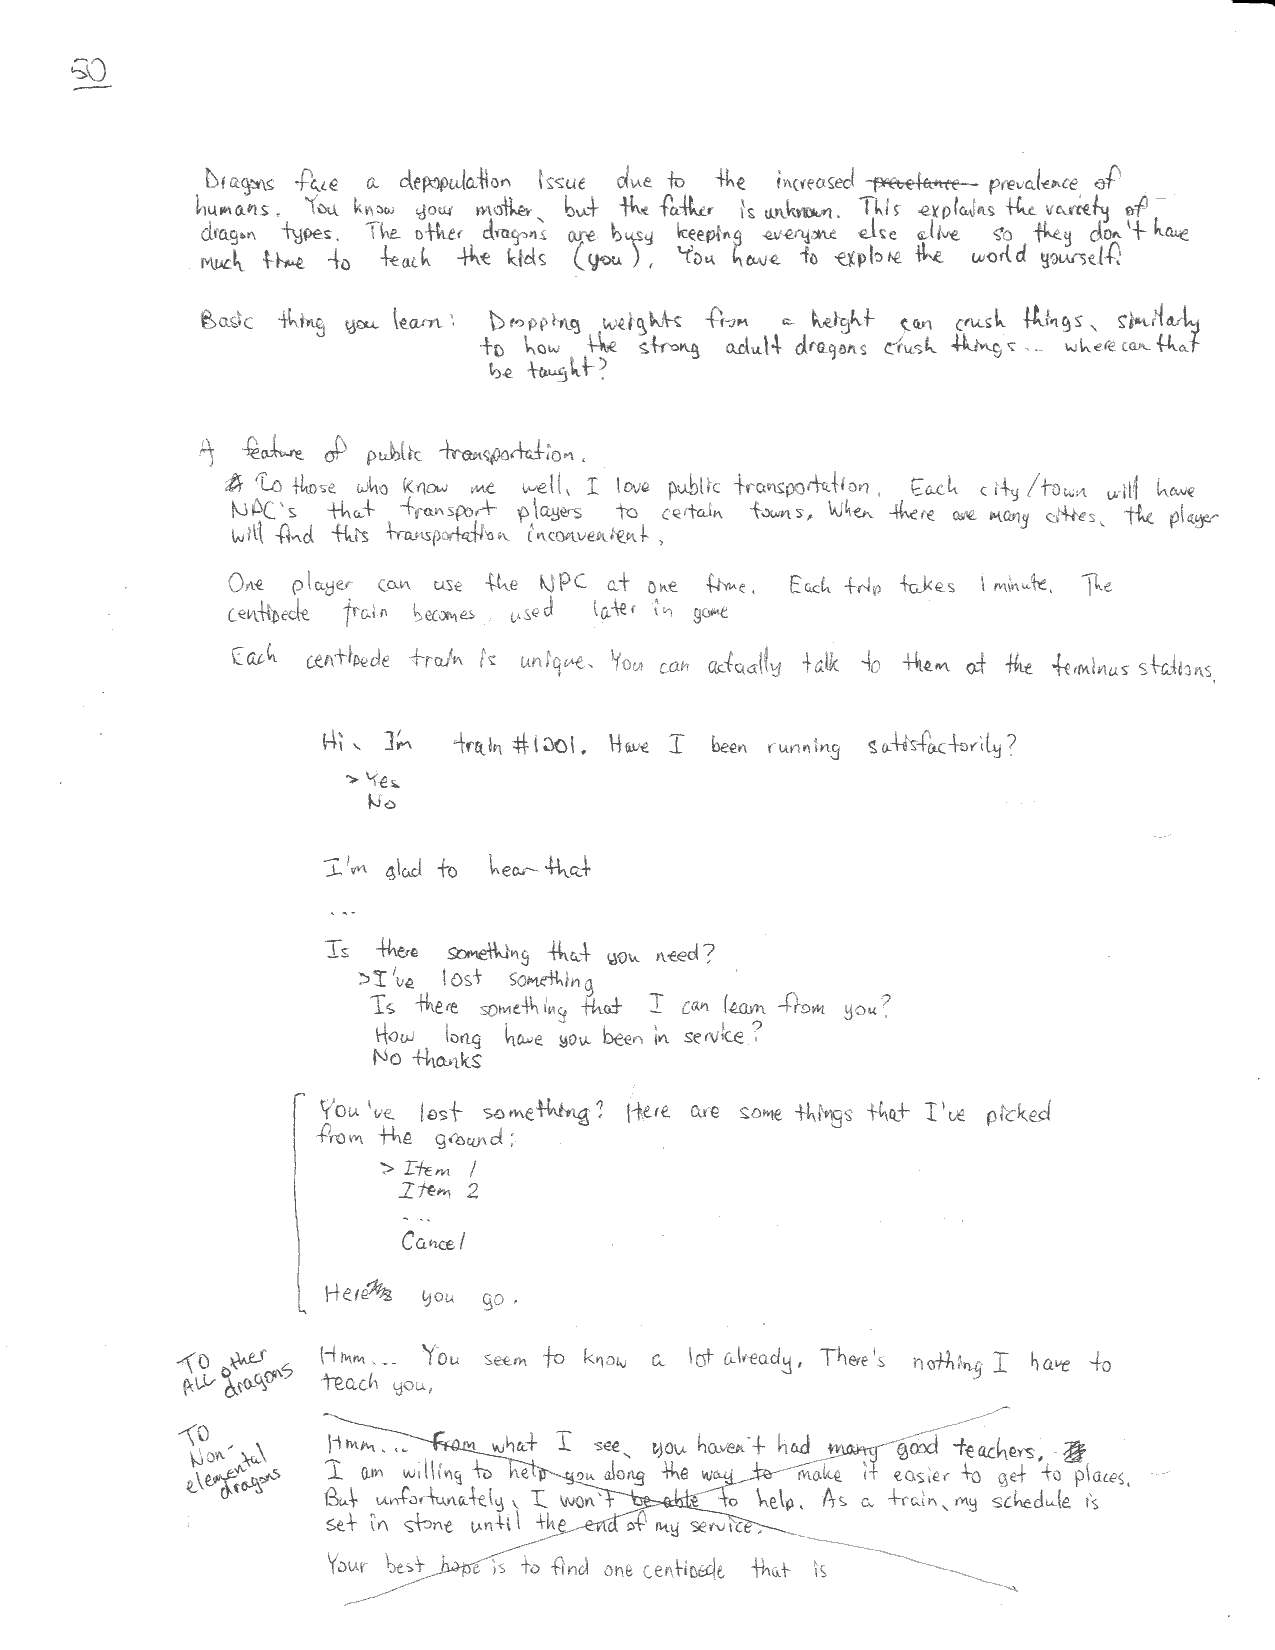 50
Dragons face a depopulation issue due to the increased prevelance prevalence of
humans. You know your mother, but the father is unknown. This explains the variety of
dragon types. The other dragons are busy keeping everyone else alive so they don't have
much time to teach the kids (you). You have to explore the world yourself.
Basic thing you learn: Dropping weights from a height can crush things, similarly
to how the strong adult dragons crush things... where can that
be taught?
A feature of public transportation.
To those who know me well, I love public transportation. Each city/town will have
NPC's that transport players to certain towns. When there are many cities, the player
will find this transportation inconvenient.
One player can use the NPC at one time. Each trip takes 1 minute. The
centipede train becomes used later in game
Each centipede train is unique. You can actually talk to them at the terminus stations.
Hi, I'm train #1201. Have I been running satisfactorily?
> Yes
No
I'm glad to hear that
...
Is there something that you need?
> I've lost something
Is there something that I can learn from you?
How long have you been in service?
No thanks
You've lost something? Here are some things that I've picked
from the ground:
> Item 1
Item 2
...
Cancel
Here you go.
TO other
ALL dragons
Hmm... You seem to know a lot already. There's nothing I have to
teach you.
TO
Non-
elemental
dragons
Hmm... From what I see, you haven't had many good teachers.
I am willing to help you along the way to make it easier to get to places.
But unfortunately, I won't be able to help. As a train, my schedule is
set in stone until the end of my service.
Your best hope is to find one centipede that is